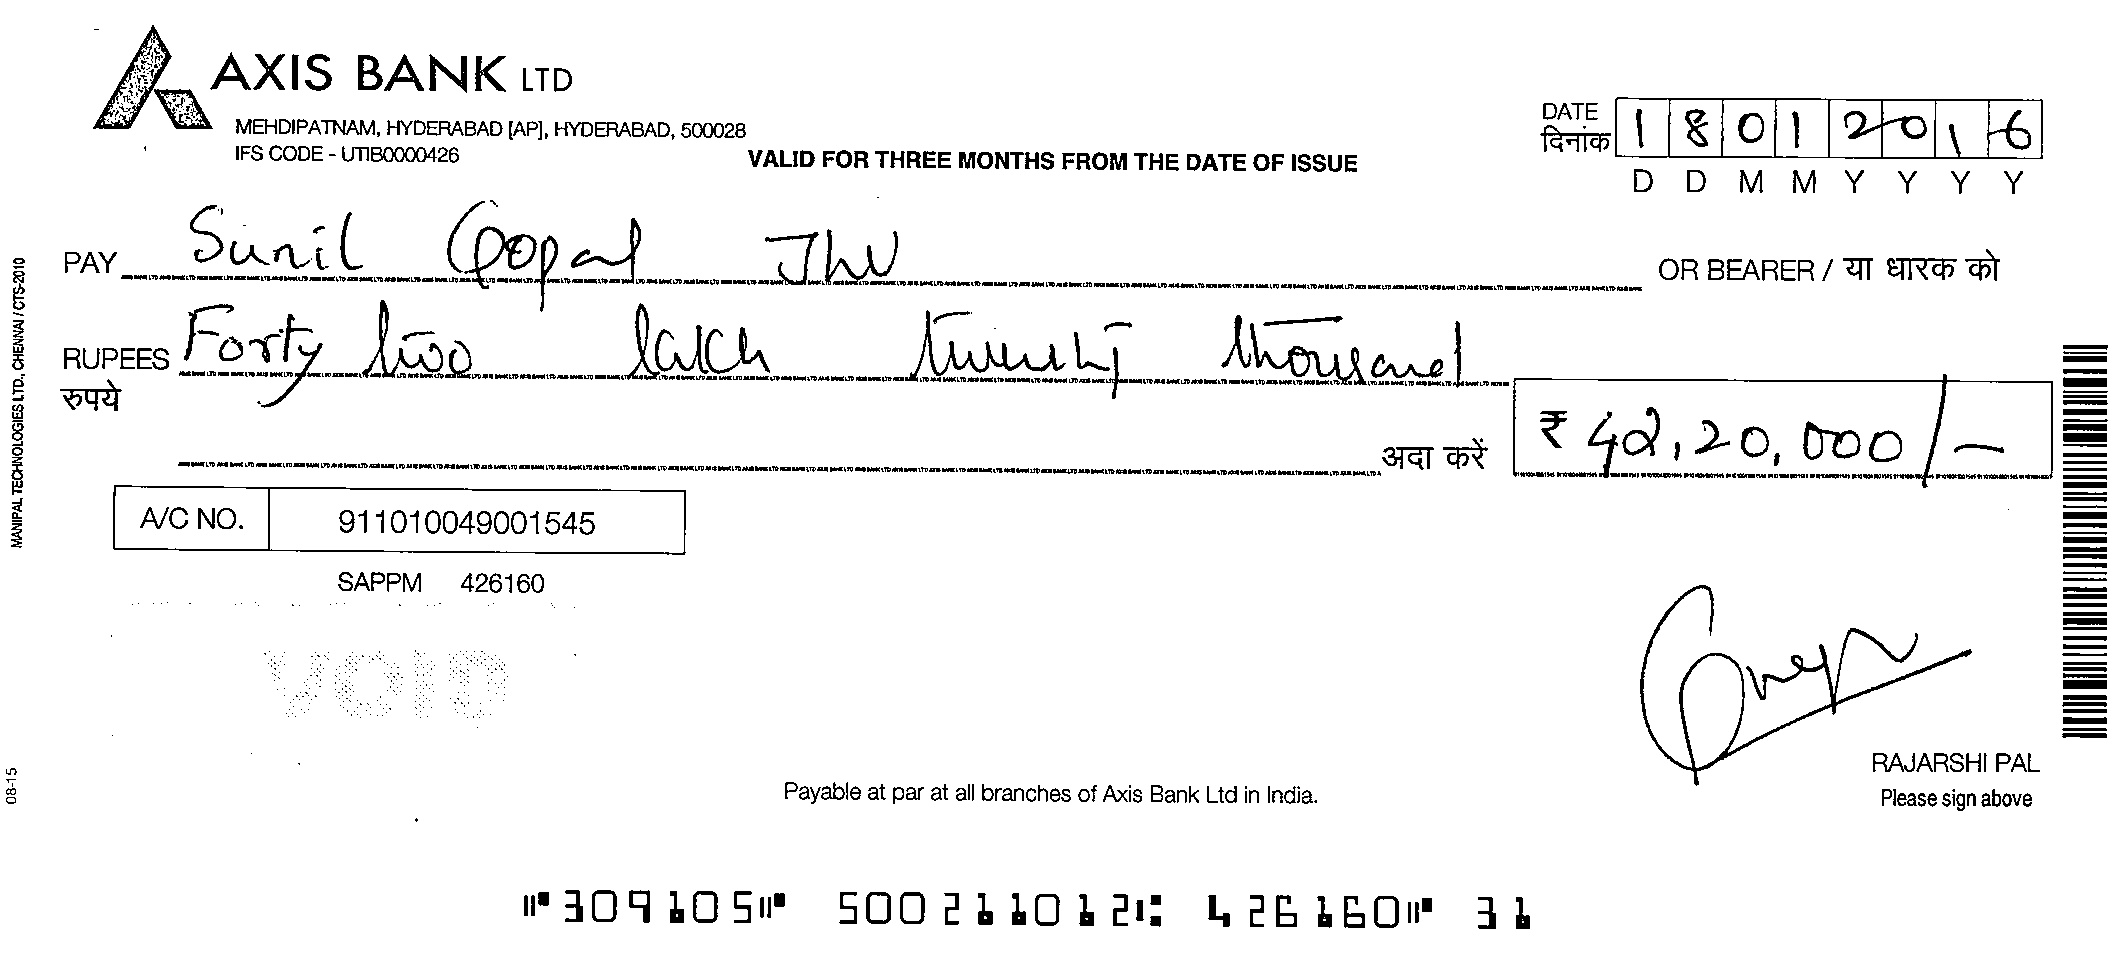 AXIS BANK LTD
MEHDIPATNAM, HYDERABAD [AP], HYDERABAD, 500028
IFS CODE - UTIB0000426
VALID FOR THREE MONTHS FROM THE DATE OF ISSUE
DATE
दिनांक
1 8 0 1 2 0 1 6
D D M M Y Y Y Y
PAY Sunil Gopal Jhu OR BEARER / या धारक को
RUPEES Forty two lakh twenty thousand
रुपये
अदा करें ₹ 42,20,000/-
A/C NO. 911010049001545
SAPPM 426160
VOID
RAJARSHI PAL
Please sign above
Payable at par at all branches of Axis Bank Ltd in India.
⑈309105⑈ 500211012⑆ 426160⑈ 31
MANIPAL TECHNOLOGIES LTD., CHENNAI / CTS-2010
08-15